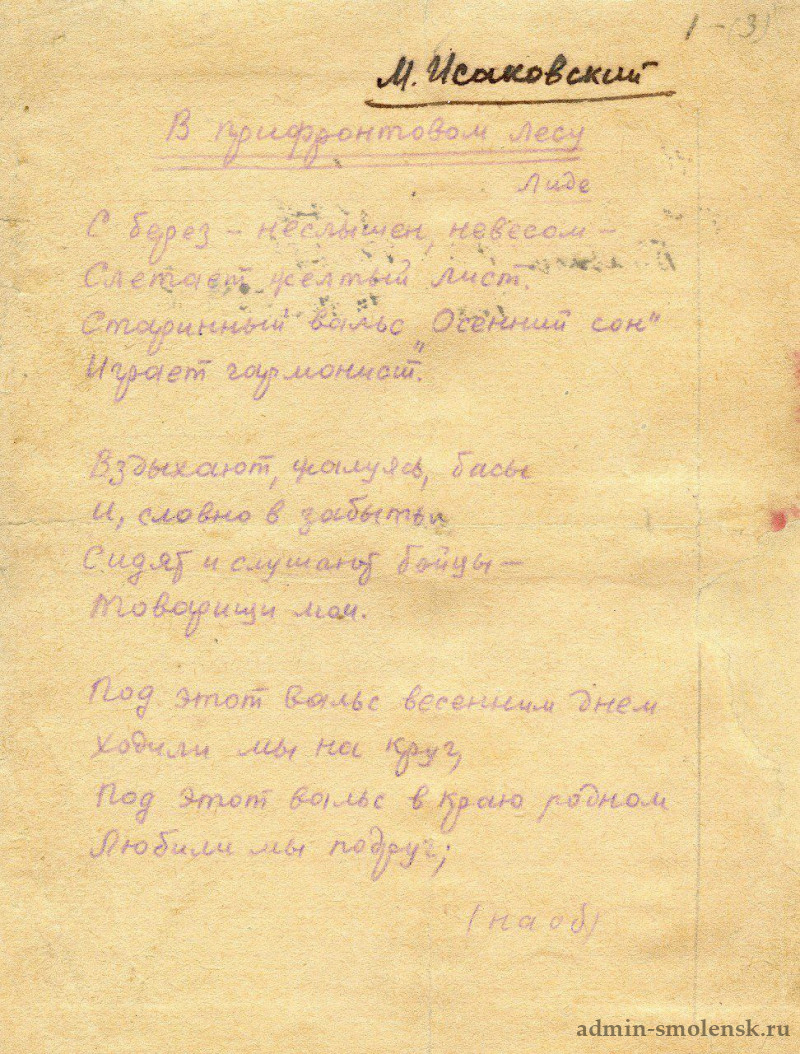 1-(3)
М. Исаковский
В прифронтовом лесу
Лиде
С берез – неслышен, невесом –
Слетает желтый лист.
Старинный вальс „Осенний сон"
Играет гармонист.
Вздыхают, жалуясь, басы
И, словно в забытьи
Сидят и слушают бойцы –
Товарищи мои.
Под этот вальс весенним днем
Ходили мы на круг,
Под этот вальс в краю родном
Любили мы подруг;
(на об)
admin-smolensk.ru